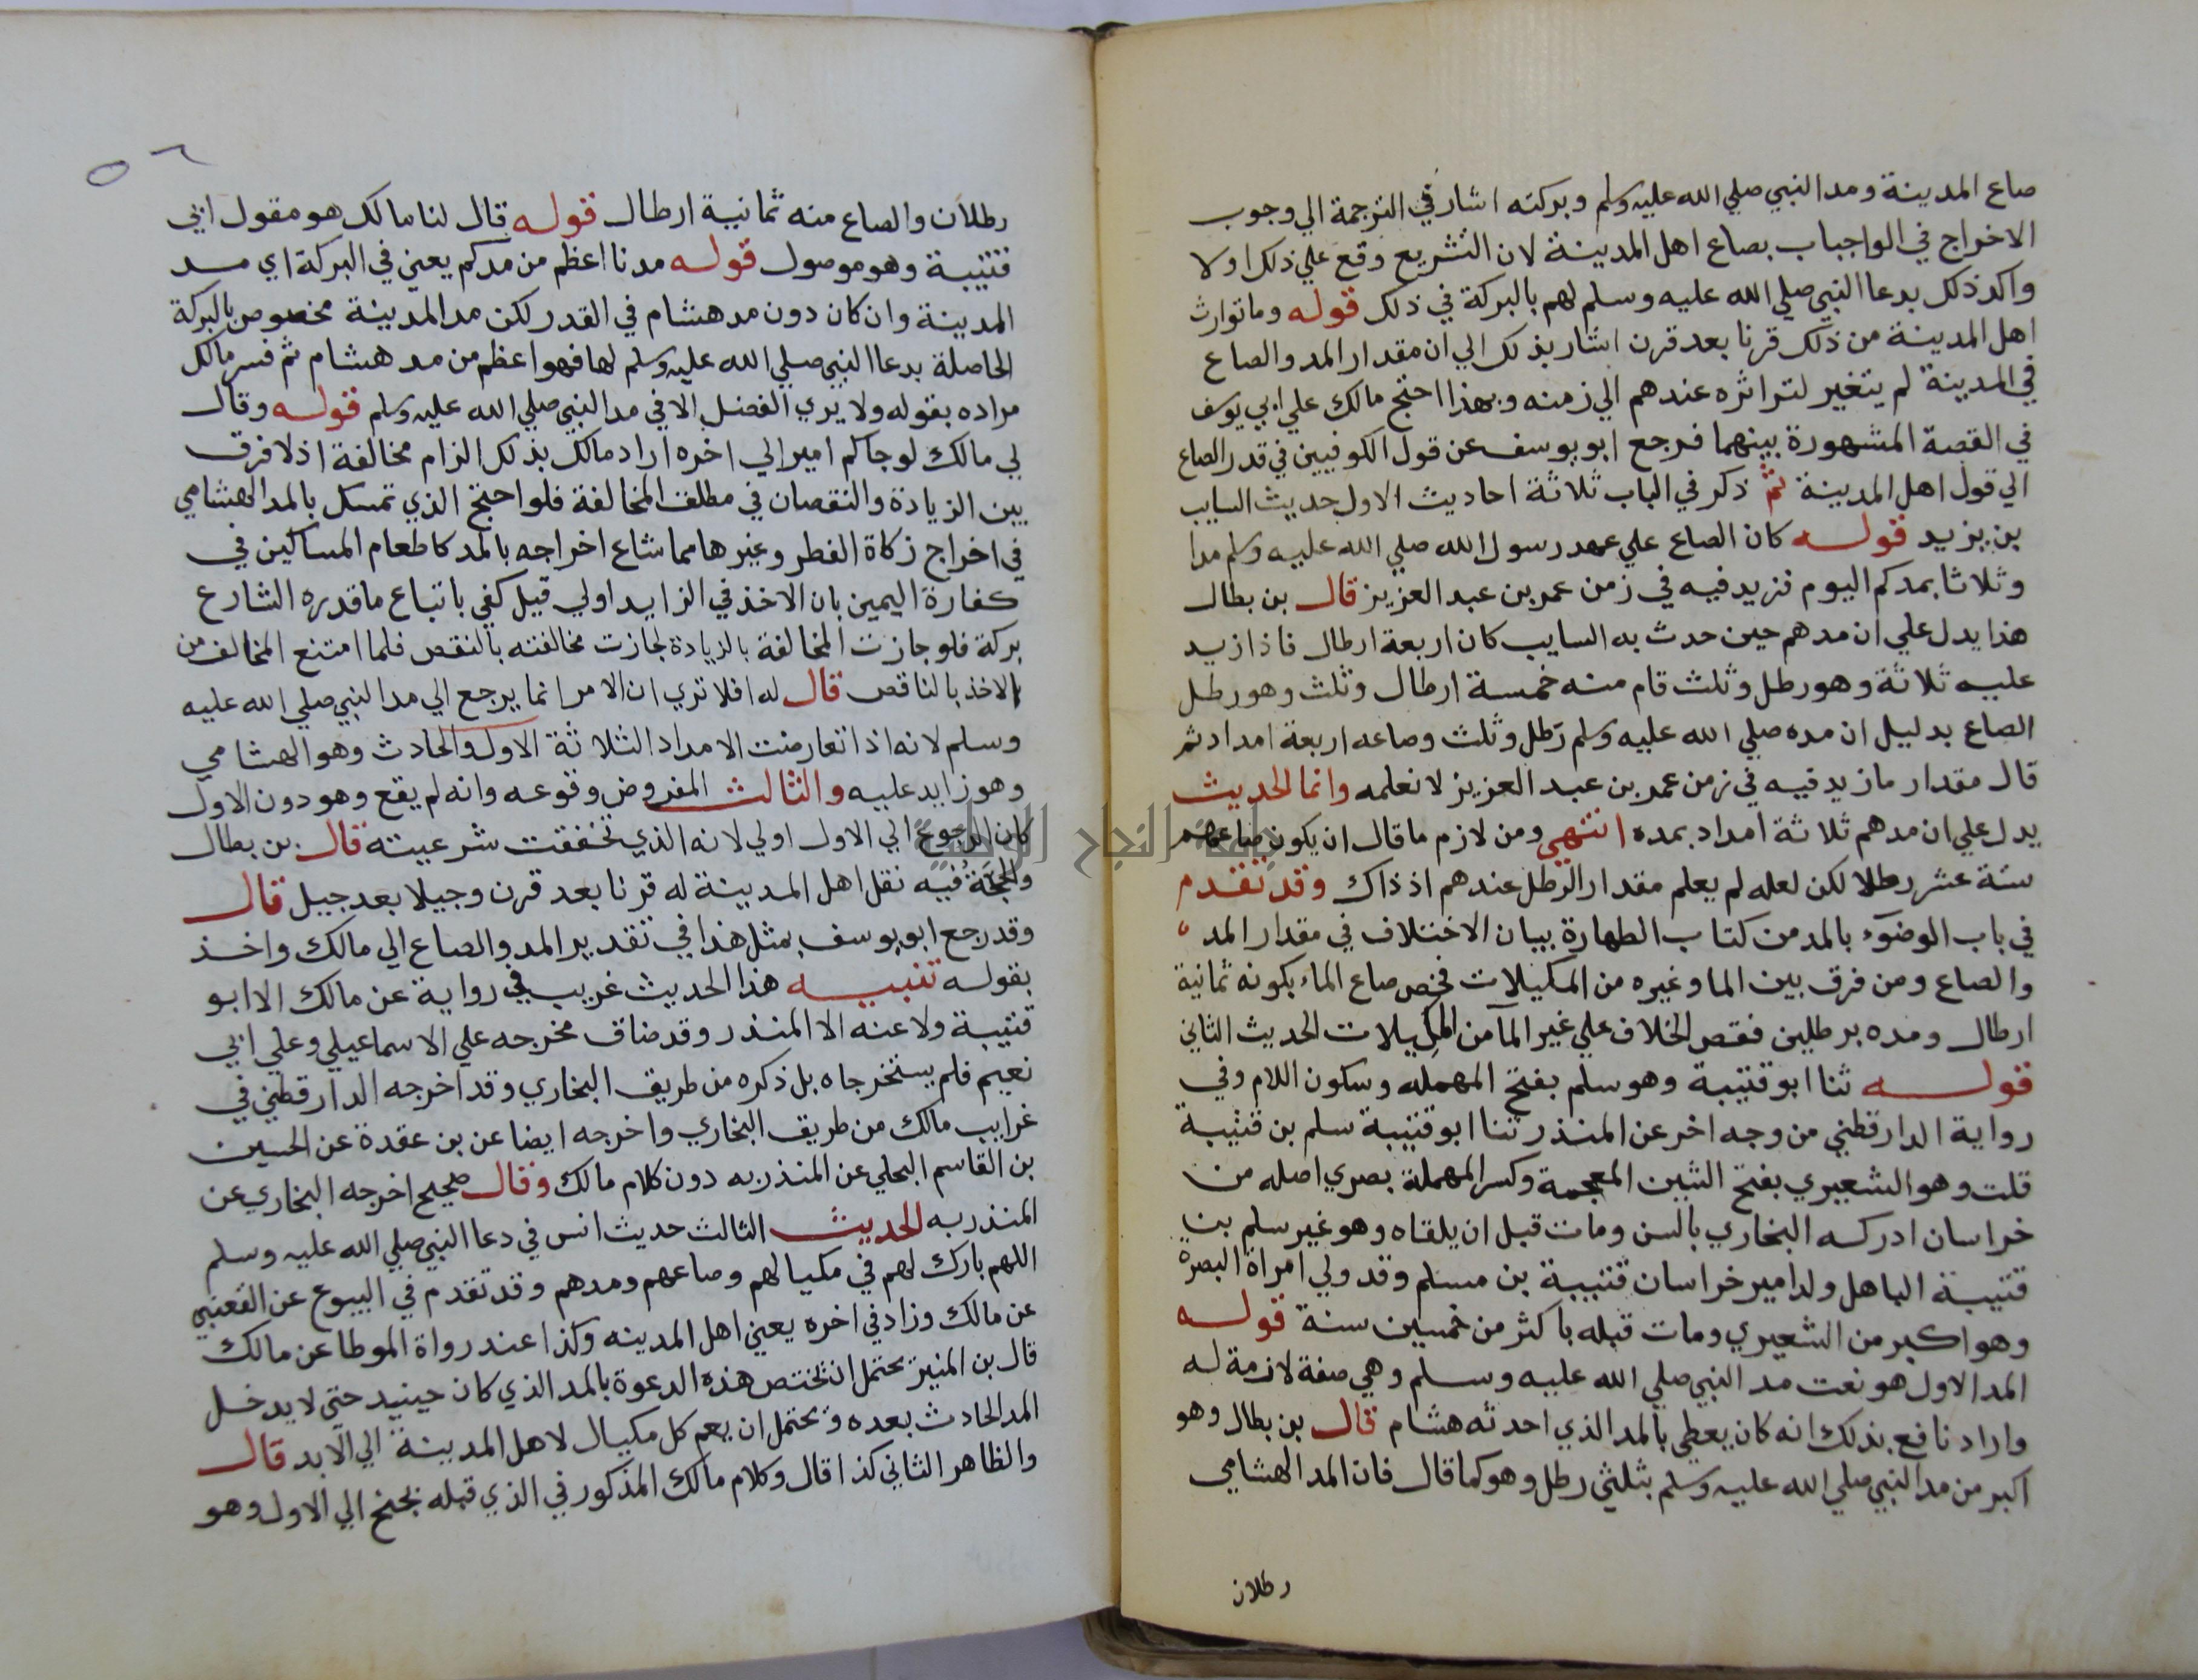 صاع المدينة ومد النبي صلي الله عليه وسلم وبركته اشار في الترجمة الي وجوب
الاخراج في الواجبات بصاع اهل المدينة لان التشريع وقع علي ذلك اولا
واكد ذلك بدعا النبي صلي الله عليه وسلم لهم بالبركة في ذلك قوله وما توارث
اهل المدينة من ذلك قرنا بعد قرن اشار بذلك الي ان مقدار المد والصاع
في المدينة لم يتغير لتواتره عندهم الي زمنه وبهذا احتج مالك علي ابي يوسف
في القصة المشهورة بينهما فرجع ابو يوسف عن قول الكوفيين في قدر الصاع
الي قول اهل المدينة ثم ذكر في الباب ثلاثة احاديث الاول حديث السايب
بن يزيد قوله كان الصاع علي عهد رسول الله صلي الله عليه وسلم مدا
وثلاثا بمدكم اليوم فزيد فيه في زمن عمر بن عبد العزيز قال بن بطال
هذا يدل علي ان مدهم حين حدث به السايب كان اربعة ارطال فاذا زيد
عليه ثلاثة وهو رطل وثلث قام منه خمسة ارطال وثلث وهو رطل
الصاع بدليل ان مده صلي الله عليه وسلم رطل وثلث وصاعه اربعة امداد ثم
قال مقدار ما زيد فيه في زمن عمر بن عبد العزيز لا نعلمه وانما الحديث
يدل علي ان مدهم ثلاثة امداد بمده انتهي ومن لازم ما قال ان يكون صاعهم
ستة عشر رطلا لكن لعله لم يعلم مقدار الرطل عندهم اذ ذاك وقد تقدم
في باب الوضوء بالمد من كتاب الطهارة بيان الاختلاف في مقدار المد
والصاع ومن فرق بين الما وغيره من المكيلات فخص صاع الماء بكونه ثمانية
ارطال ومده برطلين فقصر الخلاف علي غير الما من المكيلات الحديث الثاني
قوله ثنا ابو قتيبة وهو سلم بفتح المهمله وسكون اللام وفي
رواية الدارقطني من وجه اخر عن المنذر ثنا ابو قتيبة سلم بن قتيبة
قلت وهو الشعيري بفتح الشين المعجمة وكسر المهملة بصري اصله من
خراسان ادركه البخاري بالسن ومات قبل ان يلقاه وهو غير سلم بن
قتيبة الباهل ولد امير خراسان قتيبة بن مسلم وقد ولي امراة البصرة
وهو اكبر من الشعيري ومات قبله باكثر من خمسين سنة قوله
المد الاول هو نعت مد النبي صلي الله عليه وسلم وهي صفة لازمة له
واراد نافع بذلك انه كان يعطي بالمد الذي احدثه هشام قال بن بطال وهو
اكبر من مد النبي صلي الله عليه وسلم بثلثي رطل وهو كما قال فان المد الهشامي
رطلان
٥٦
رطلان والصاع منه ثمانية ارطال قوله قال لنا مالك هو مقول ابي
قتيبة وهو موصول قوله مدنا اعظم من مدكم يعني في البركة اي مد
المدينة وان كان دون مد هشام في القدر لكن مد المدينة مخصوص بالبركة
الحاصلة بدعا النبي صلي الله عليه وسلم لها فهو اعظم من مد هشام ثم فسر مالك
مراده بقوله ولا يري الفضل الا في مد النبي صلي الله عليه وسلم قوله وقال
لي مالك لو جاكم امير الي اخره اراد مالك بذلك الزام مخالفة اذ لا فرق
بين الزيادة والنقصان في مطلق المخالفة فلو احتج الذي تمسك بالمد الهشامي
في اخراج زكاة الفطر وغيرها مما شاع اخراجه بالمد كاطعام المساكين في
كفارة اليمين بان الاخذ في الزايد اولي قيل كفي باتباع ما قدره الشارع
بركة فلو جازت المخالفة بالزيادة لجازت مخالفته بالنقص فلما امتنع المخالف من
الاخذ بالناقص قال له افلا تري ان الامر انما يرجع الي مد النبي صلي الله عليه
وسلم لانه اذا تعارضت الامداد الثلاثة الاول والحادث وهو الهشامي
وهو زايد عليه والثالث المفروض وقوعه وانه لم يقع وهو دون الاول
كان الرجوع الي الاول اولي لانه الذي تحققت شرعيته قال بن بطال
والحجة فيه نقل اهل المدينة له قرنا بعد قرن وجيلا بعد جيل قال
وقد رجع ابو يوسف بمثل هذا في تقدير المد والصاع الي مالك واخذ
بقوله تنبيه هذا الحديث غريب في رواية عن مالك الا ابو
قتيبة ولا عنه الا المنذر وقد ضاق مخرجه علي الاسماعيلي وعلي ابي
نعيم فلم يستخرجاه بل ذكره من طريق البخاري وقد اخرجه الدارقطني في
غرايب مالك من طريق البخاري واخرجه ايضا عن بن عقدة عن الحسين
بن القاسم البجلي عن المنذر به دون كلام مالك وقال صحيح اخرجه البخاري عن
المنذر به الحديث الثالث حديث انس في دعا النبي صلي الله عليه وسلم
اللهم بارك لهم في مكيالهم وصاعهم ومدهم وقد تقدم في البيوع عن القعنبي
عن مالك وزاد في اخره يعني اهل المدينه وكذا عند رواة الموطا عن مالك
قال بن المنير يحتمل ان تختص هذه الدعوة بالمد الذي كان حينيد حتي لا يدخل
المد الحادث بعده ويحتمل ان يعم كل مكيال لاهل المدينة الي الابد قال
والظاهر الثاني كذا قال وكلام مالك المذكور في الذي قبله يجنح الي الاول وهو
جامعة النجاح الوطنية